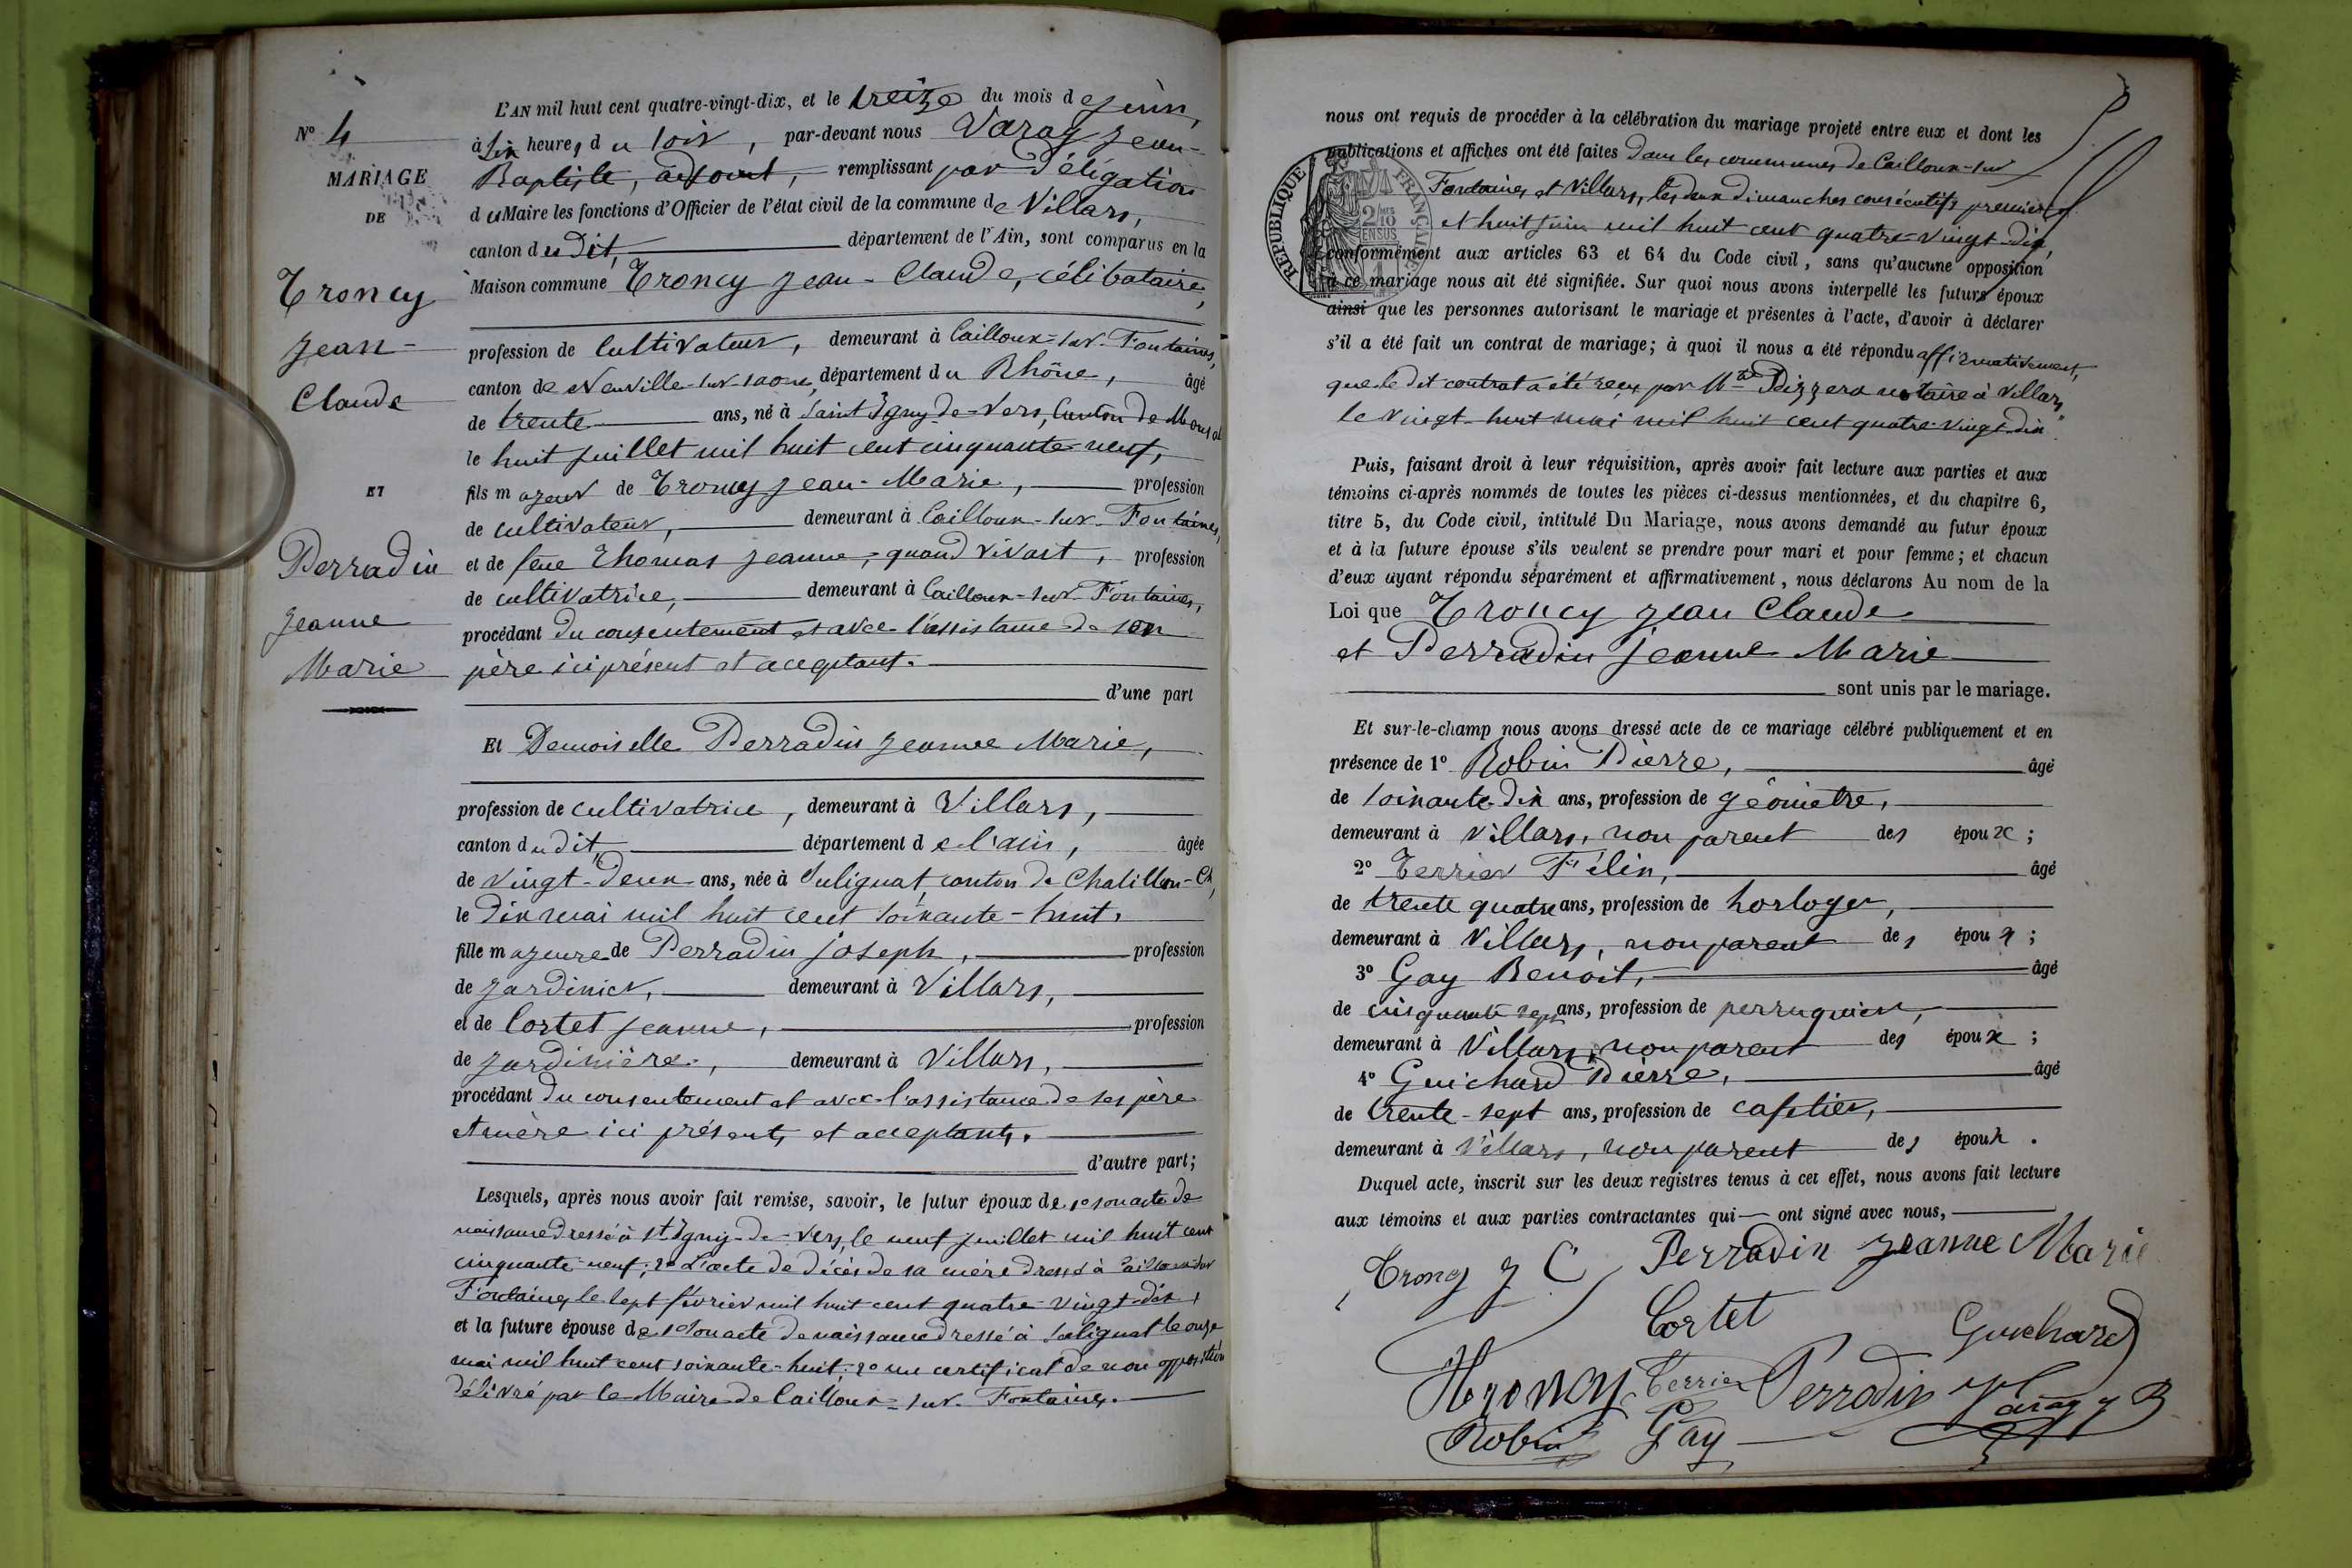 L'AN mil huit cent quatre-vingt-dix, et le treize du mois de juin,
N° 4
à six heures du soir, par-devant nous Varay Jean-
MARIAGE
Baptiste, adjoint, remplissant par Délégation
DE
du Maire les fonctions d'Officier de l'état civil de la commune de Villars,
canton dudit, département de l'Ain, sont comparus en la
Troncy
Maison commune Troncy Jean-Claude, célibataire,
Jean-
profession de Cultivateur, demeurant à Cailloux-sur-Fontaines,
canton de Neuville-sur-Saone, département du Rhône, âgé
Claude
de trente ans, né à Saint Igny-de-Vers, Canton de Monsol
le huit juillet mil huit cent cinquante-neuf,
ET
fils majeur de Troncy Jean-Marie, profession
de cultivateur, demeurant à Cailloux-sur-Fontaines,
Perradin
et de feue Thomas Jeanne, quand vivait, profession
de cultivatrice, demeurant à Cailloux-sur-Fontaines,
Jeanne
procédant du consentement et avec l'assistance de son
Marie
père ici présent et acceptant.
d'une part
Et Demoiselle Perradin Jeanne Marie,
profession de cultivatrice, demeurant à Villars,
canton dudit, département de l'ain, âgée
de vingt-deux ans, née à Sulignat canton de Chatillon-Ch,
le dix mai mil huit cent soixante-huit,
fille majeure de Perradin Joseph, profession
de jardinier, demeurant à Villars,
et de Cortet Jeanne, profession
de jardinière, demeurant à Villars,
procédant du consentement et avec l'assistance de ses père
et mère ici présents et acceptants.
d'autre part;
Lesquels, après nous avoir fait remise, savoir, le futur époux de 1° son acte de
naissance dressé à St Igny-de-Vers, le neuf juillet mil huit cent
cinquante-neuf; 2° L'acte de décès de sa mère dressé à Cailloux-sur
Fontaines, le sept février mil huit cent quatre-vingt-dix,
et la future épouse de 1° son acte de naissance dressé à Sulignat le onze
mai mil huit cent soixante-huit; 2° un certificat de non opposition
délivré par le Maire de Cailloux-sur-Fontaines.
nous ont requis de procéder à la célébration du mariage projeté entre eux et dont les
publications et affiches ont été faites dans les communes de Cailloux-sur
Fontaines et Villars, les deux dimanches consécutifs premier
et huit juin mil huit cent quatre-vingt-dix,
conformément aux articles 63 et 64 du Code civil, sans qu'aucune opposition
à ce mariage nous ait été signifiée. Sur quoi nous avons interpellé les futurs époux
ainsi que les personnes autorisant le mariage et présentes à l'acte, d'avoir à déclarer
s'il a été fait un contrat de mariage; à quoi il nous a été répondu affirmativement,
que le dit contrat a été reçu par Mtre Pizzera notaire à Villars
le vingt-huit mai mil huit cent quatre-vingt-dix.
RÉPUBLIQUE FRANÇAISE
2/10
EN SUS
Puis, faisant droit à leur réquisition, après avoir fait lecture aux parties et aux
témoins ci-après nommés de toutes les pièces ci-dessus mentionnées, et du chapitre 6,
titre 5, du Code civil, intitulé Du Mariage, nous avons demandé au futur époux
et à la future épouse s'ils veulent se prendre pour mari et pour femme; et chacun
d'eux ayant répondu séparément et affirmativement, nous déclarons Au nom de la
Loi que Troncy Jean Claude
et Perradin Jeanne Marie
sont unis par le mariage.
Et sur-le-champ nous avons dressé acte de ce mariage célébré publiquement et en
présence de 1° Robin Pierre, âgé
de soixante-dix ans, profession de géomètre,
demeurant à Villars, non parent des époux;
2° Terrier Félix, âgé
de trente quatre ans, profession de horloger,
demeurant à Villars, non parent des époux;
3° Gay Benoit, âgé
de cinquante sept ans, profession de perruquier,
demeurant à Villars, non parent des époux;
4° Guichard Pierre, âgé
de trente-sept ans, profession de cafetier,
demeurant à Villars, non parent des époux.
Duquel acte, inscrit sur les deux registres tenus à cet effet, nous avons fait lecture
aux témoins et aux parties contractantes qui ont signé avec nous,
Troncy J C Perradin Jeanne Marie
Cortet Guichard
Troncy Terrier Perradin Varay J B
Robin Gay